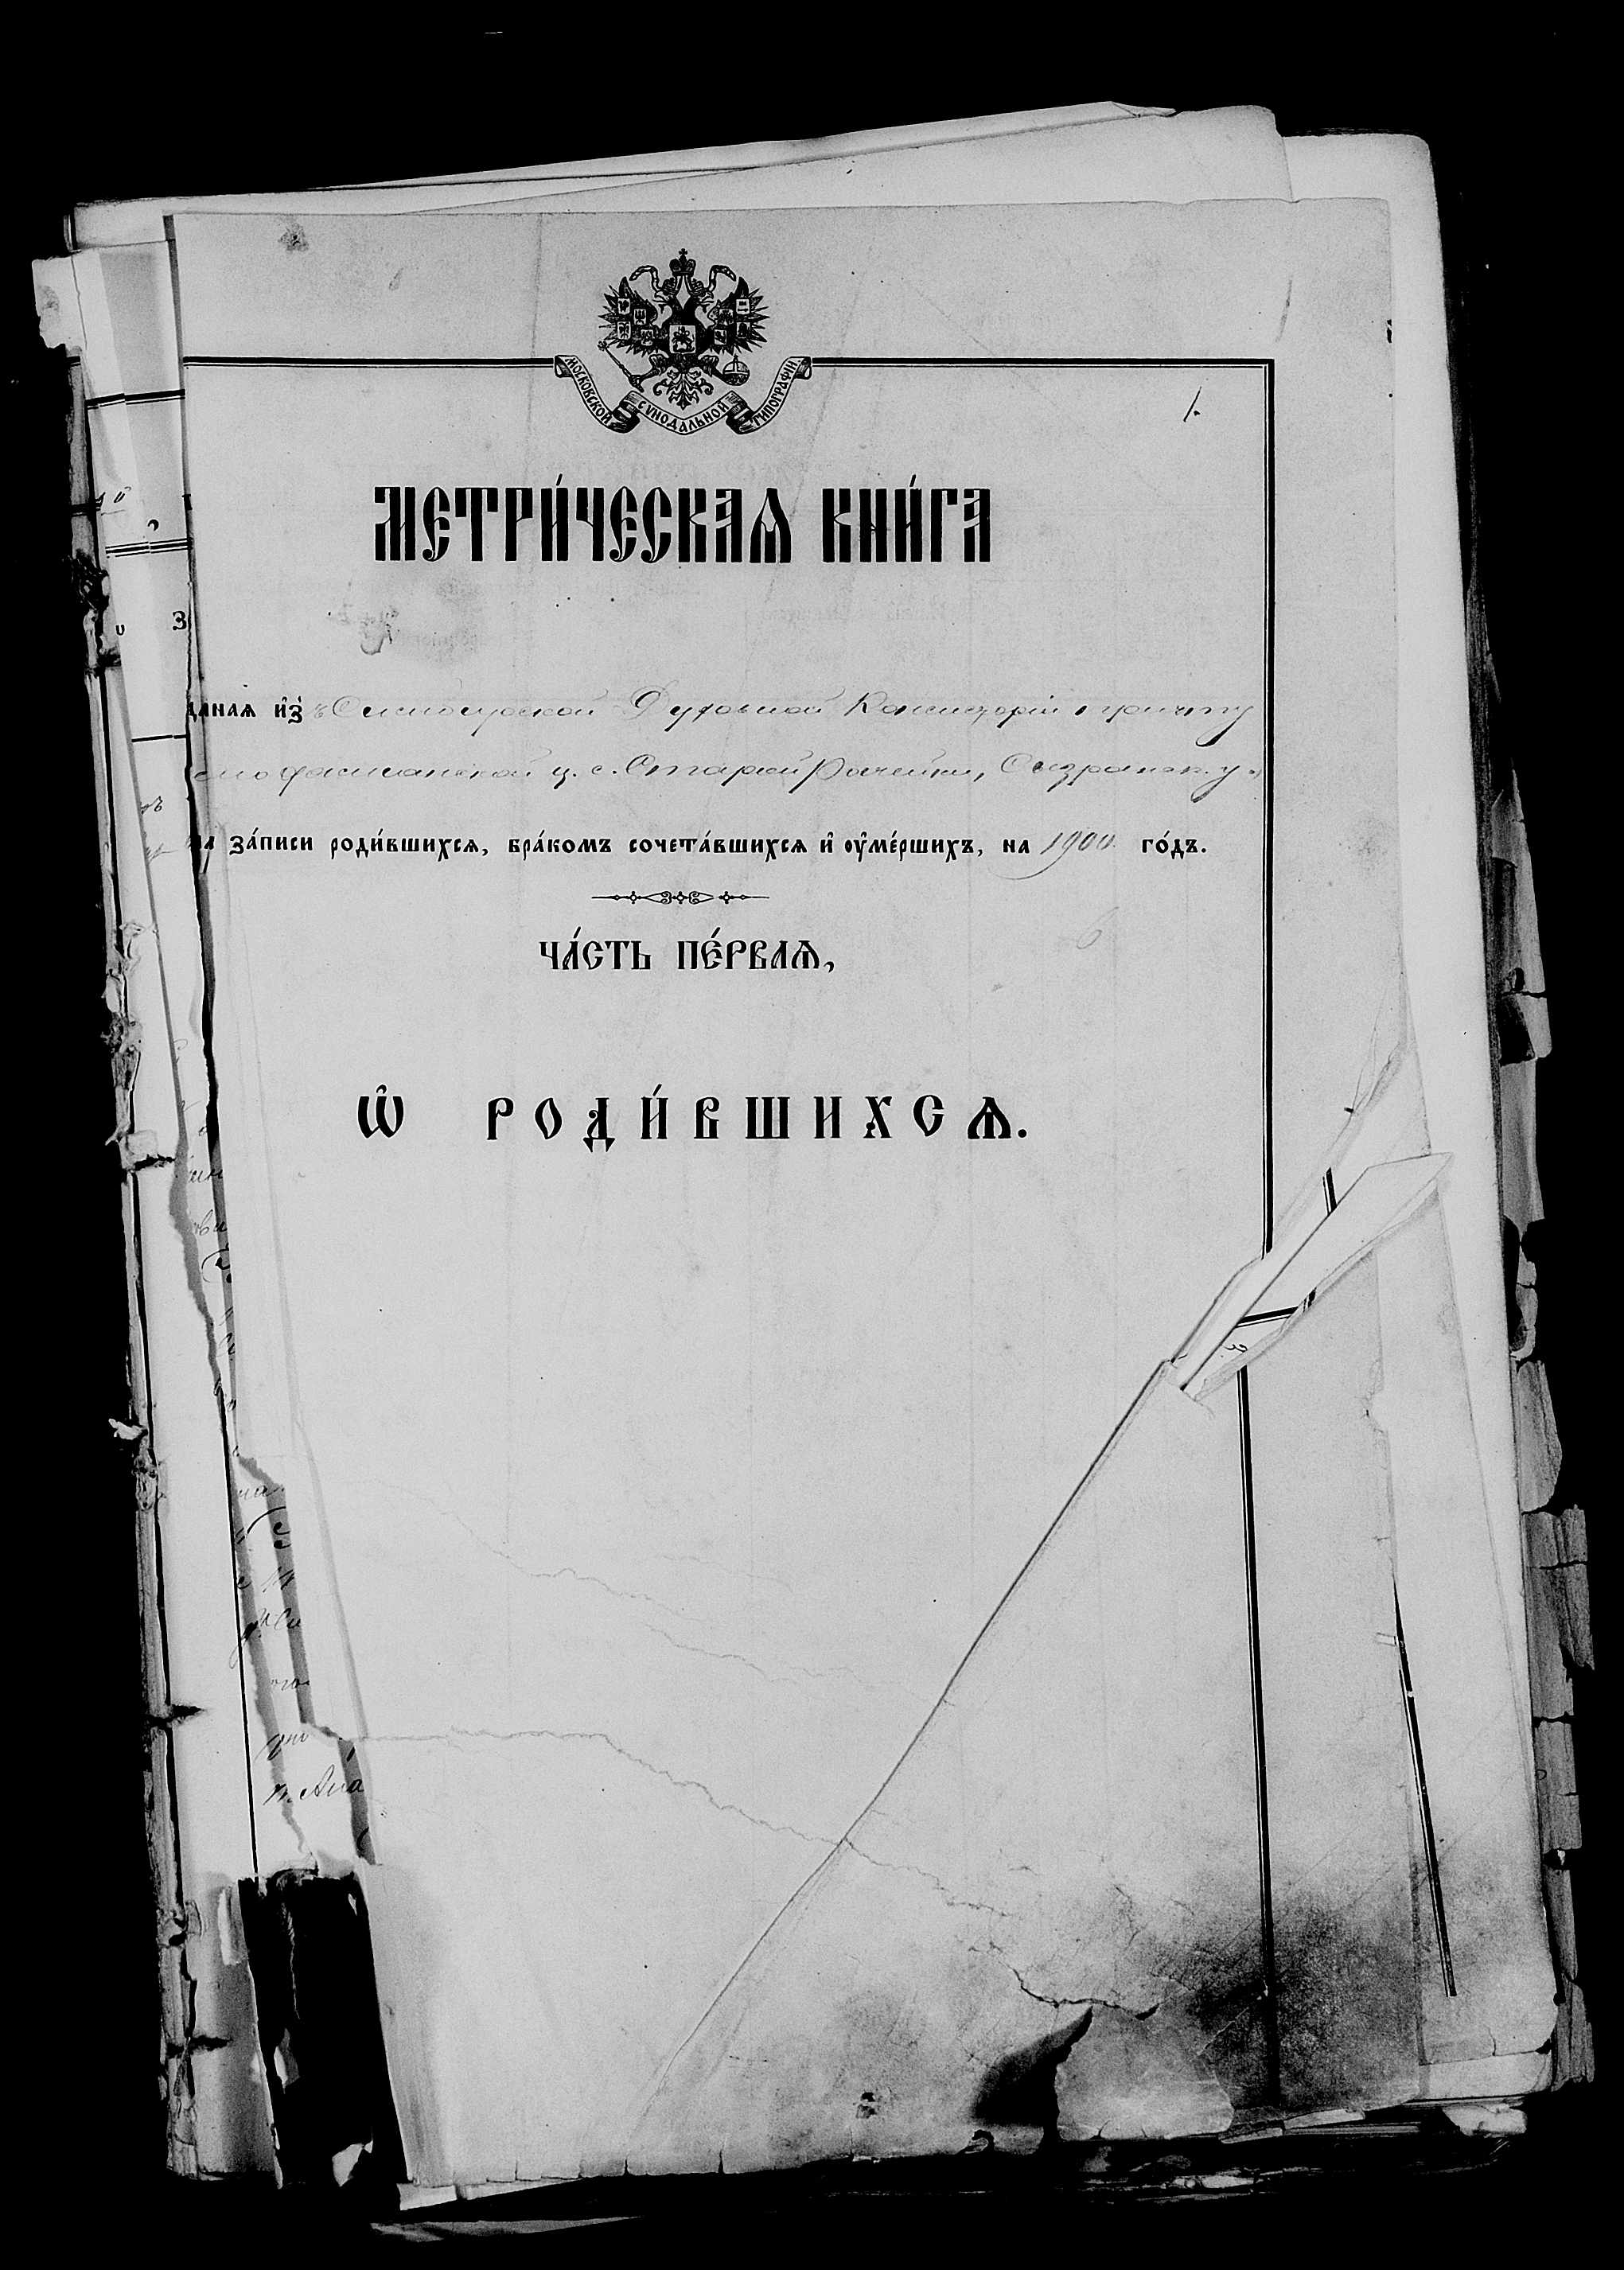 МОСКОВСКОЙ СѴНОДАЛЬНОЙ ТИПОГРАФІИ.
1.
МЕТРИ́ЧЕСКАѦ КНИ́ГА
даная и҆з̾ ъ Симбирской Духовной Консисторіи причту
смодаміанской ц. с. Старой Рачейки, Сызранск. у.
за́писи роди́вшихсѧ, бра́комъ сочета́вшихсѧ и҆ ᲂу҆ме́ршихъ, на 1900 го́дъ.
ЧА́СТЬ ПЕ́РВАѦ,
Ѽ РОДИ́ВШИХСѦ.